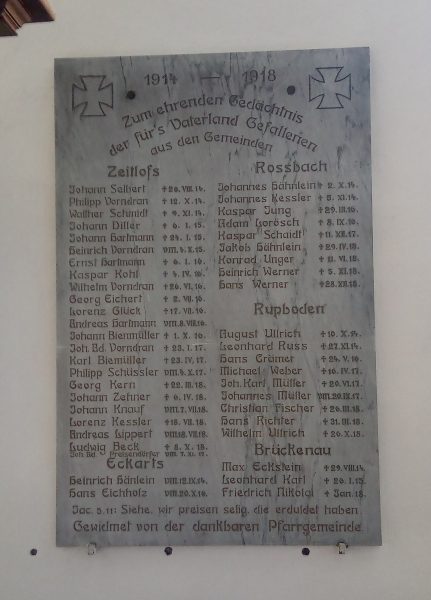 1914 — 1918
Zum ehrenden Gedächtnis
der für's Vaterland Gefallenen
aus den Gemeinden
Zeitlofs
Johann Seibert † 20. VIII. 14.
Philipp Vorndran † 12. X. 14.
Walther Schmidt † 9. XI. 14.
Johann Diller † 6. I. 15.
Johann Hartmann † 24. I. 15.
Heinrich Vorndran VM. 4. X. 15.
Ernst Hartmann † 6. I. 16.
Kaspar Kohl † 4. IV. 16.
Wilhelm Vorndran † 26. VI. 16.
Georg Eichert † 2. VII. 16.
Lorenz Glück † 17. VII. 16.
Andreas Hartmann VM. 8. VIII. 16.
Johann Bienmüller † 1. X. 16.
Joh. Ad. Vorndran † 23. I. 17.
Karl Biemüller † 23. IV. 17.
Philipp Schlüssler VM. 4. X. 17.
Georg Kern † 22. III. 18.
Johann Zehner † 6. IV. 18.
Johann Knauf VM. 7. VII. 18.
Lorenz Kessler † 18. VII. 18.
Andreas Lippert VM. 18. VII. 18.
Ludwig Beck † 8. X. 18.
Joh. Ad. Preisendörfer VM. 7. XI. 17.
Eckarts
Heinrich Hänlein VM. 12. IX. 14.
Hans Eichholz VM. 20. X. 16.
Rossbach
Johannes Hähnlein † 2. X. 14.
Johannes Kessler † 5. XI. 14.
Kaspar Jung † 29. III. 16.
Adam † 8. IX. 16.
Kaspar Schaidt † 11. XII. 17.
Jakob Hähnlein † 29. IV. 18.
Konrad Unger † 11. VI. 18.
Heinrich Werner † 5. XI. 18.
Hans Werner † 28. XII. 18.
Rupboden
August Ullrich † 10. X. 14.
Leonhard Russ † 27. XI. 14.
Hans Crämer † 24. V. 16.
Michael Weber † 16. IV. 17.
Joh. Karl Müller † 20. VI. 17.
Johannes Müller VM. 20. IX. 17.
Christian Fischer † 26. III. 18.
Hans Richter † 31. III. 18.
Wilhelm Ullrich † 26. X. 18.
Brückenau
Max Eckstein † 29. VIII. 14.
Leonhard Karl † 26. I. 15.
Friedrich Nikolai † Jan. 18.
Jac. 5. 11: Siehe, wir preisen selig, die erduldet haben.
Gewidmet von der dankbaren Pfarrgemeinde